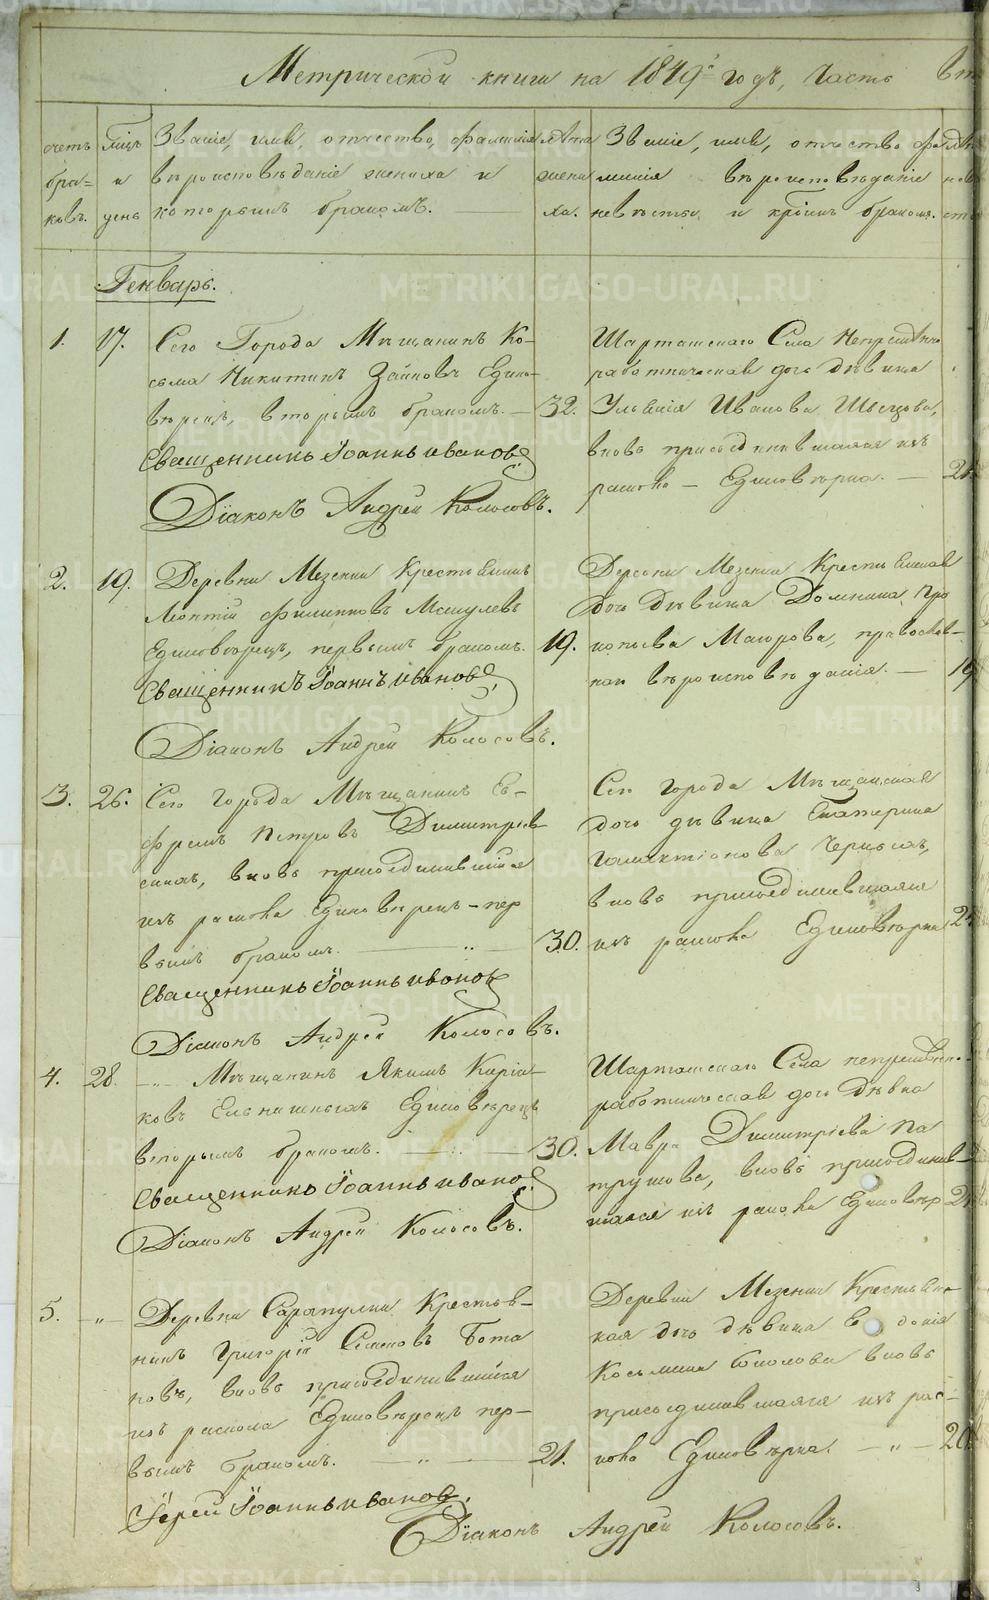 Метрической книги на 1849й годъ, Часть вт
счетъ бра= ковъ.
Мцъ и день
Званіе, имя, отчество, фамилія
вѣроисповѣданіе жениха и
которымъ бракомъ.
лѣта жени ха.
Званіе, имя, отчество фа
милія вѣроисповѣданіе
невѣсты и кобимъ бракомъ.
Генварь.
1. 17.
Сего Города Мѣщанинъ Ко-
сьма Никитинъ Едино-
вѣрецъ, вторымъ бракомъ. — 32.
Священникъ Іоаннъ Ивановъ
Діаконъ Андрей Колосовъ.
Шарташскаго Села Непремѣнно
работническая дочь дѣвица
Ульянія Иванова Швецова,
вновь присоединившаяся изъ
раскола — Единовѣрка. —
2. 19.
Деревни Мезенки Крестьянинъ
Леонтій Филиповъ
Единовѣрецъ, первымъ бракомъ. 19.
Священникъ Іоаннъ Ивановъ
Діаконъ Андрей Колосовъ.
Деревни Мезенки Крестьянская
дочь дѣвица Домника Про
копьева Маюрова, православ-
наго вѣроисповѣданія. — 19
3. 26.
Сего города Мѣщанинъ Еф-
фремъ Петровъ Димитріев
вновь присоединившійся
изъ раскола Единовѣрецъ — пер
вымъ бракомъ. — 30.
Священникъ Іоаннъ Ивановъ
Діаконъ Андрей Колосовъ.
Сего города Мѣщанская
дочь дѣвица Екатерина
Галактіонова
вновь присоединившаяся
изъ раскола Единовѣрка
4. 28.
—„— Мѣщанинъ Якимъ Киріа-
ковъ Единовѣрецъ
вторымъ бракомъ. — 30.
Священникъ Іоаннъ Ивановъ
Діаконъ Андрей Колосовъ.
Шарташскаго Села непремѣнно-
работническая дочь Дѣвка
Мавра Димитріева Па
трушова, вновь присоединив-
шаяся изъ раскола Единовѣр
5. —„—
Деревни Сарапулки Крестья-
нинъ Григорій Семеновъ Бота
ковъ, вновь присоединившійся
изъ раскола Единовѣрецъ пер-
вымъ бракомъ. — 21.
Іерей Іоаннъ Ивановъ.
Деревни Мезенки Крестьянс
кая дочь дѣвица
Косьмина вновь
присоединившаяся изъ рас-
кола Единовѣрка. —„— 20
Діаконъ Андрей Колосовъ.
METRIKI.GASO-URAL.RU